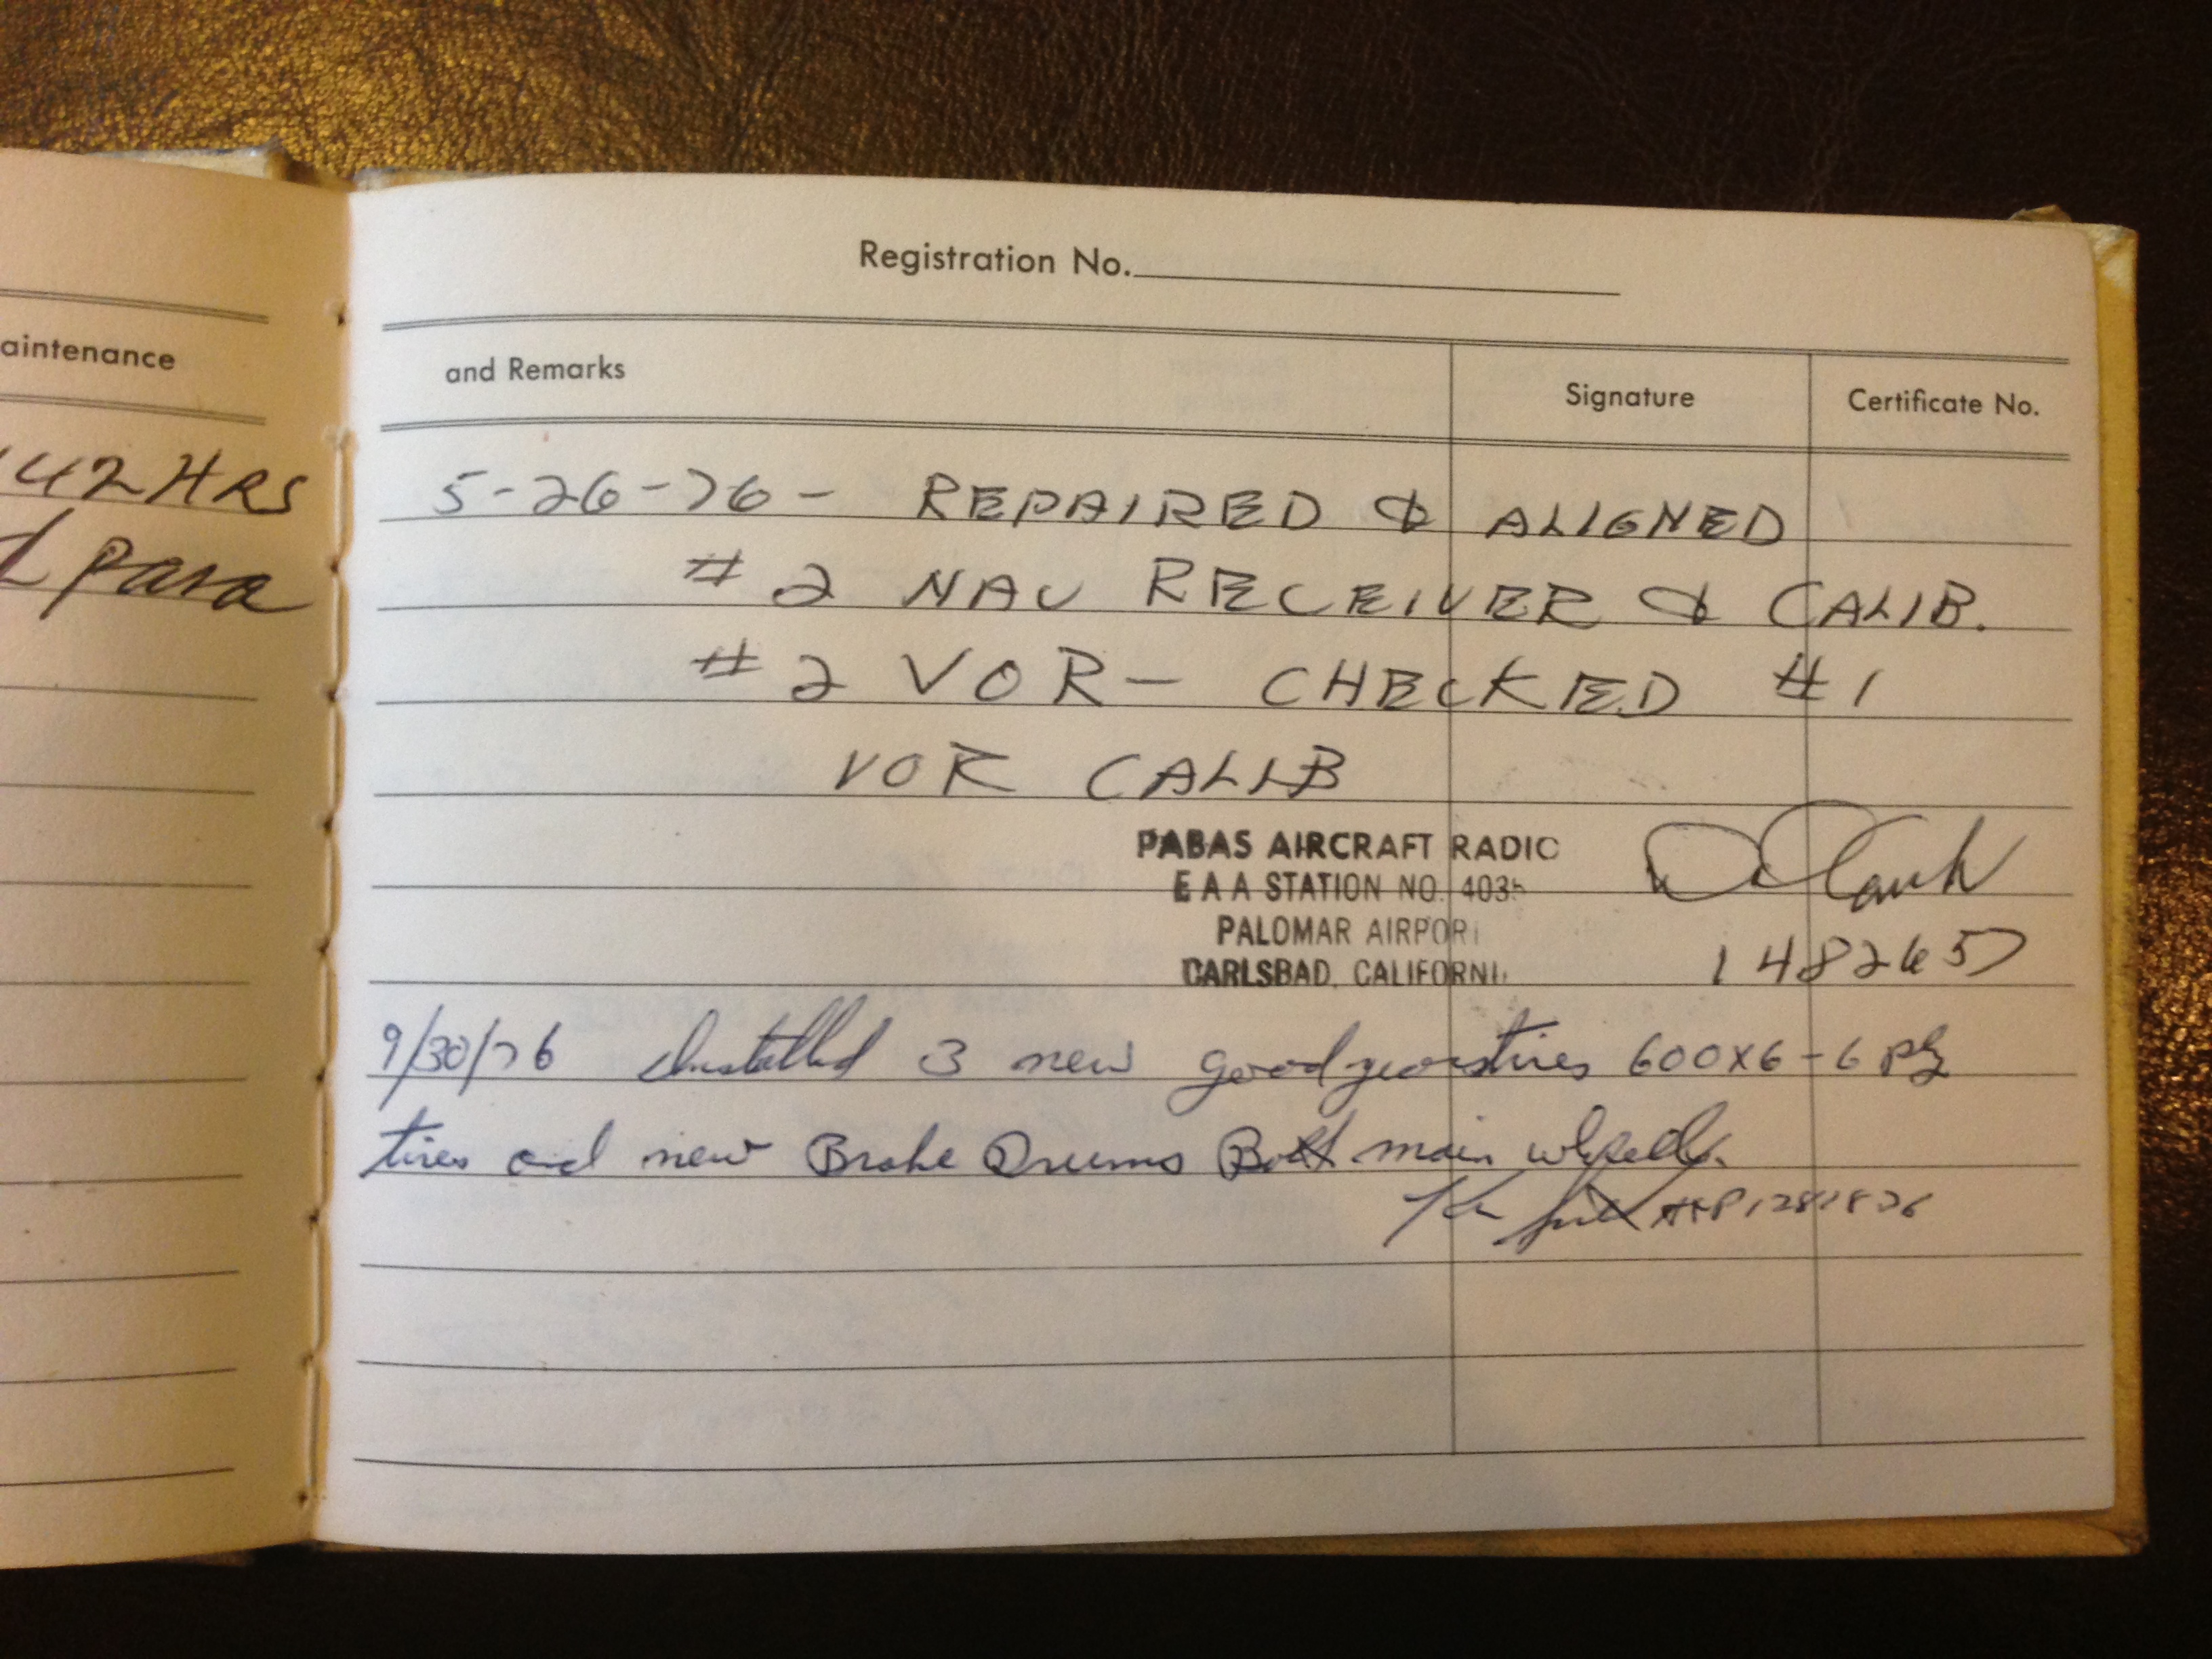 aintenance
42 HRS
para
Registration No.
and Remarks
Signature
Certificate No.
5-26-76 - REPAIRED & ALIGNED
#2 NAV RECEIVER & CALIB.
#2 VOR - CHECKED #1
VOR CALIB
PABAS AIRCRAFT RADIO
E A A STATION NO. 4035
PALOMAR AIRPORT
CARLSBAD, CALIFORNI
D Clark
1482657
9/30/76 Installed 3 new goodyear tires 600X6-6 ply
tires and new Brake Drums Both main wheels.
Ken A&P 1281826